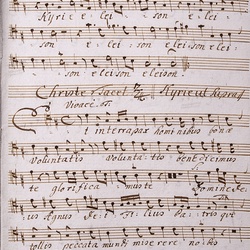 Kyri e lei son e lei
son e lei son e leison e lei
son e leison eleison.
Christe tacet Kyrie ut supra
Vivace
Et in terra pax hominibus bonæ
Voluntatis Volunta tis benedicimus
te glorifica mus te Domine De
ius Agnus De i Filius Pa tris qui
tollis peccata mundi miserere nobis